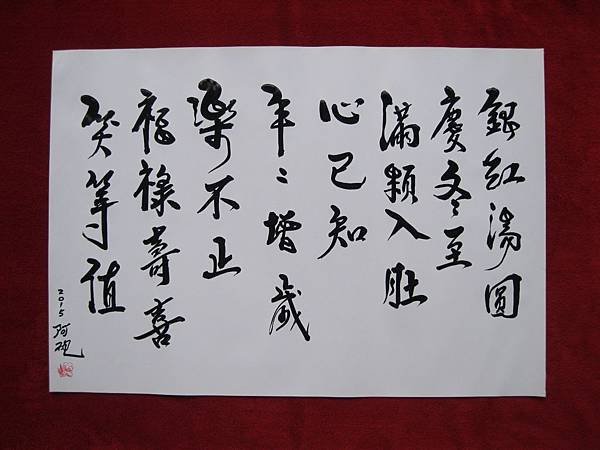 銀紅湯圓
慶冬至
滿顆入肚
心已知
年々增歲
樂不止
福祿壽喜
笑等值
2015 阿